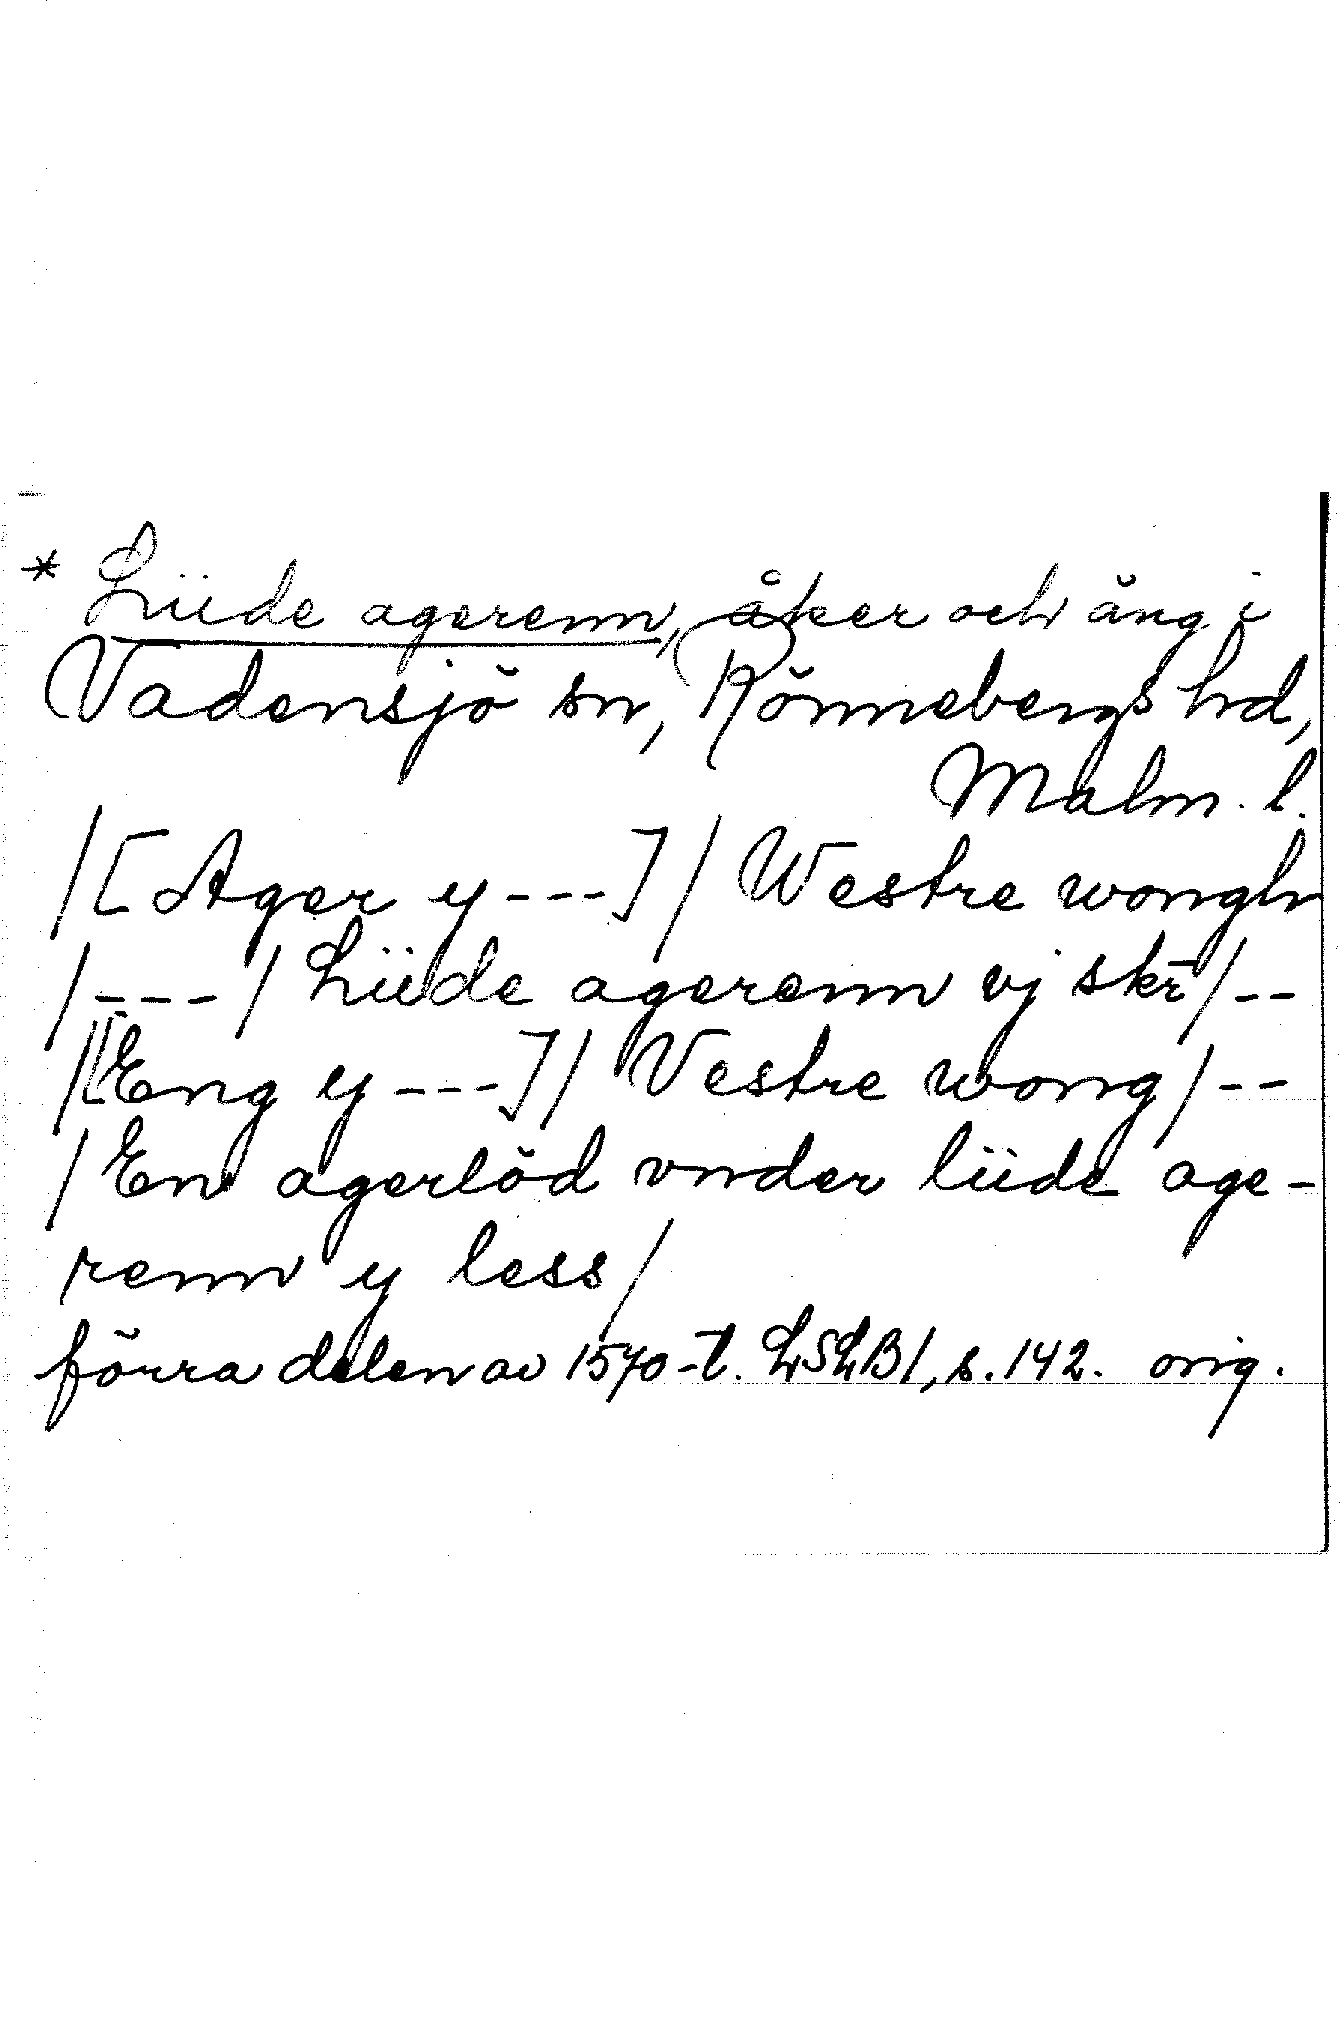 * Lüde agerenn, åker och äng i
Vadensjö sn, Rönnebergs hd,
Malm. l.
/[Ager y ---]/ Westre wongh
/---/ Lüde agerenn vj skr̄/--
/[Eng y ---]/ Vestre wong/--
/En agerlöd vnder lüde age-
renn y less/
förra delen av 1570-t. LSLB1, s. 142. orig.